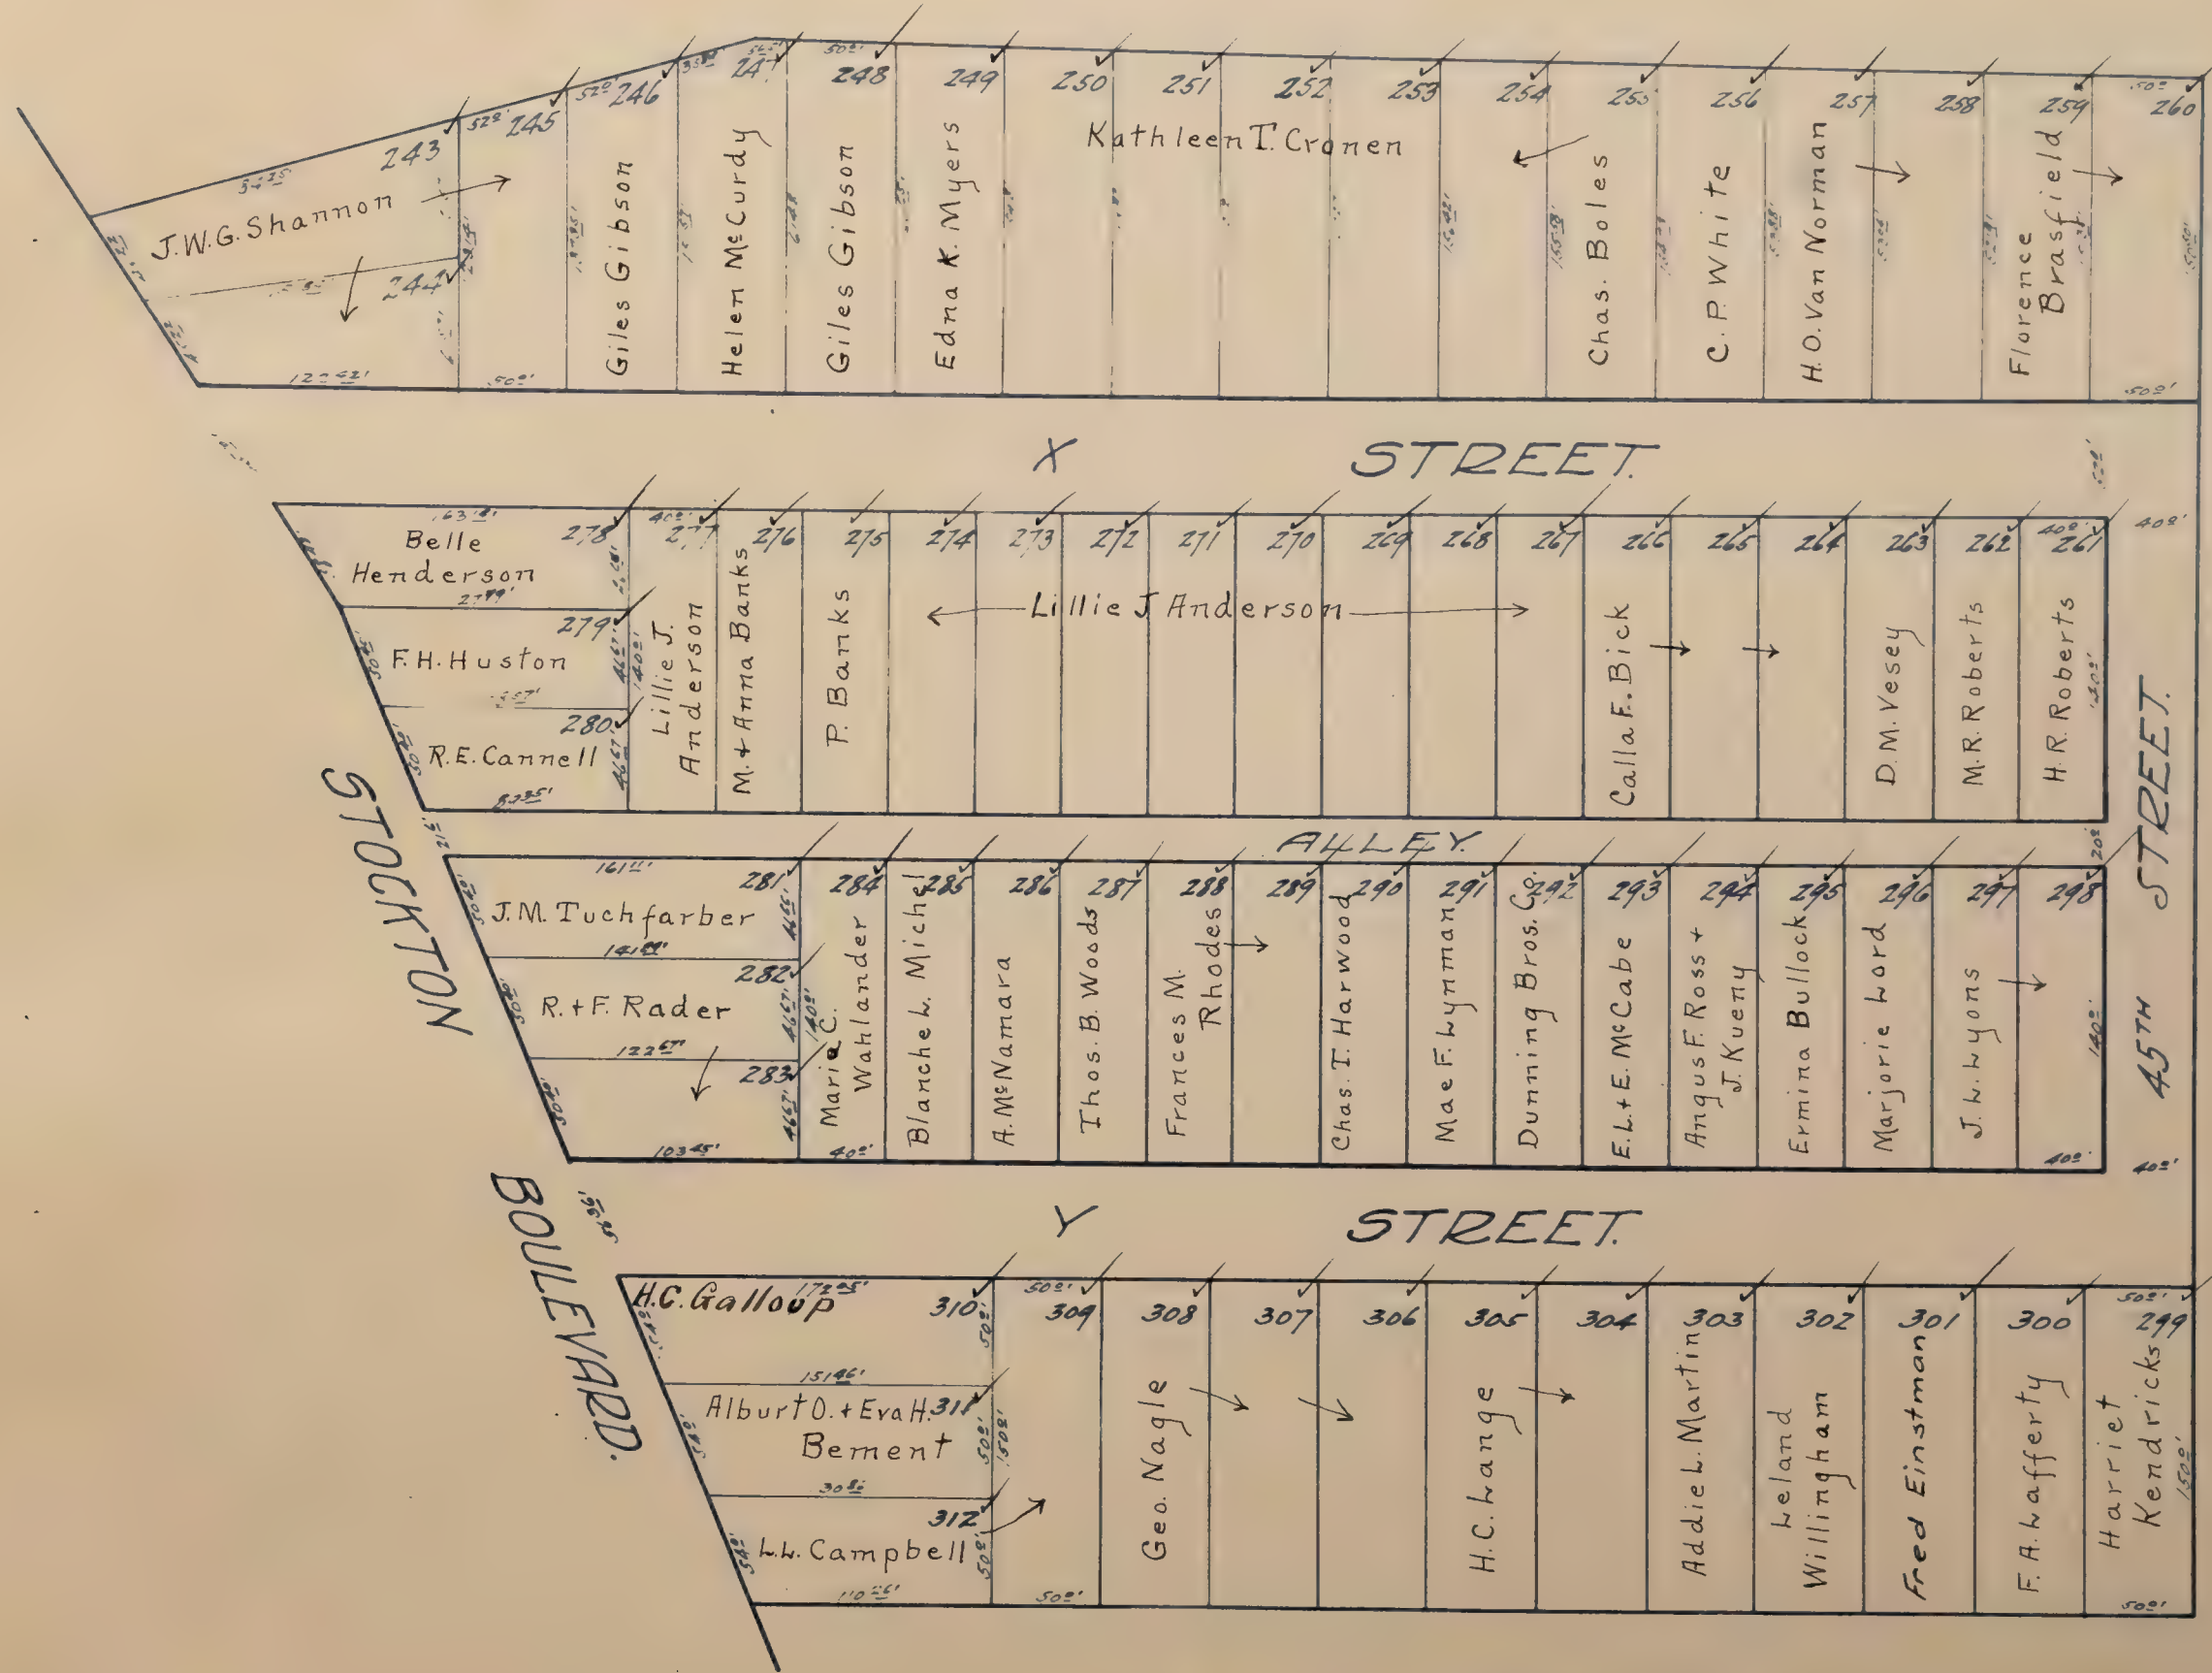 243
245
246
247
248
249
250
251
252
253
254
255
256
257
258
259
260
52º'
52º'
50º'
50º'
J.W.G. Shannon
244
Giles Gibson
Helen McCurdy
Giles Gibson
Edna K. Myers
Kathleen T. Cronen
Chas. Boles
C. P. White
H. O. Van Norman
Florence
Brasfield
50º'
50º'
X STREET.
278
277
276
275
274
273
272
271
270
269
268
267
266
265
264
263
262
261
40º'
40º'
40º'
Belle
Henderson
279
F. H. Huston
46 67'
140º'
280
R. E. Cannell
46 67'
Lillie J.
Anderson
M. + Anna Banks
P. Banks
Lillie J. Anderson
Calla F. Bick
D. M. Vesey
M. R. Roberts
H. R. Roberts
140º'
ALLEY.
20º'
281
284
285
286
287
288
289
290
291
292
293
294
295
296
297
298
J. M. Tuchfarber
282
R. + F. Rader
46 67'
140º'
122 67'
283
46 67'
103 45'
40º'
Marie C.
Wahlander
Blanche L. Michel
A. McNamara
Thos. B. Woods
Frances M.
Rhodes
Chas. T. Harwood
Mae F. Lynman
Dunning Bros. Co.
E. L. + E. McCabe
Angus F. Ross +
J. Kueny
Ermina Bullock
Marjorie Lord
J. L. Lyons
140º'
40º'
40º'
Y STREET.
45TH STREET.
STOCKTON BOULEVARD.
H.C. Galloup
310
309
308
307
306
305
304
303
302
301
300
299
50º'
50º'
50º'
151 46'
Alburt O. + Eva H.
Bement
311
50º'
150º'
312
L. L. Campbell
50º'
50º'
Geo. Nagle
H. C. Lange
Addie L. Martin
Leland
Willingham
Fred Einstman
F. A. Lafferty
Harriet
Kendricks
150º'
50º'